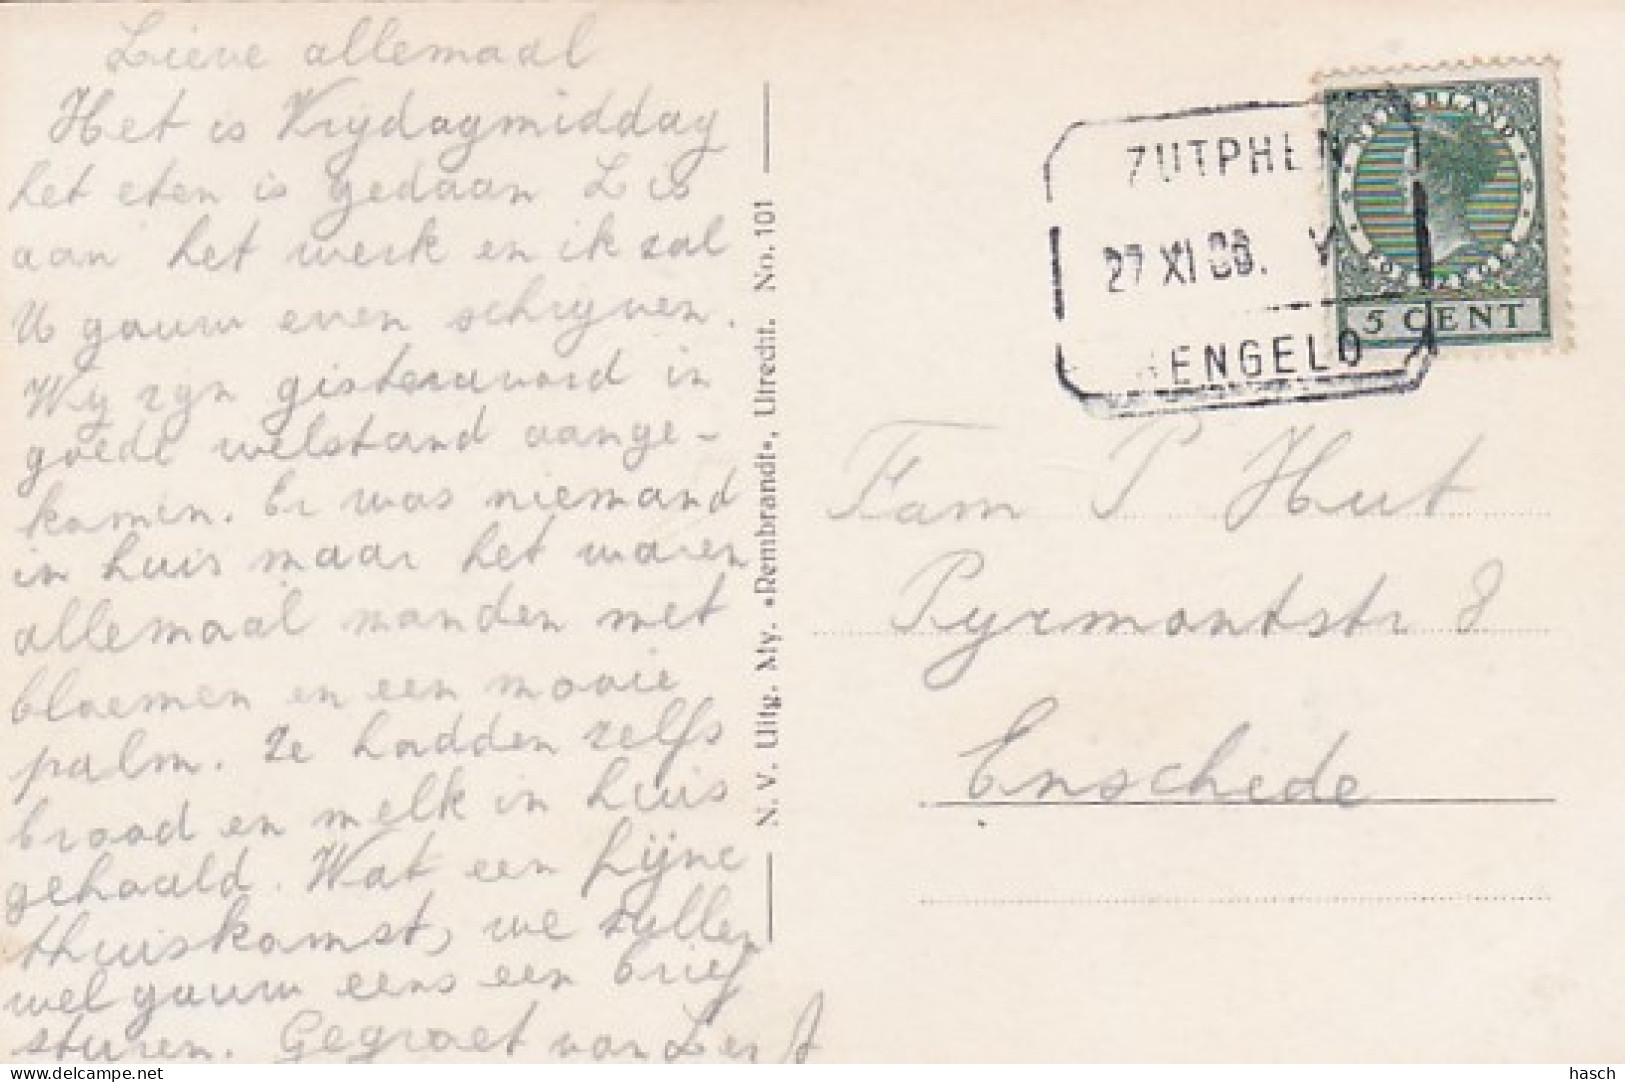 Lieve allemaal
Het is Vrijdagmiddag
het eten is gedaan L is
aan het werk en ik zal
U gauw even schrijven.
Wij zijn gisteravond in
goede welstand aange-
komen. Er was niemand
in huis maar het waren
allemaal manden met
bloemen en een mooie
palm. Ze hadden zelfs
brood en melk in huis
gehaald. Wat een fijne
thuiskomst, we zullen
wel gauw eens een brief
sturen. Gegroet van L en J
N. V. Uitg. My. «Rembrandt», Utrecht. No. 101
NEDERLAND
5 CENT
ZUTPHEN
27 XI 36. V
HENGELO
Fam P Hut
Pyrmontstr 8
Enschede
hasch